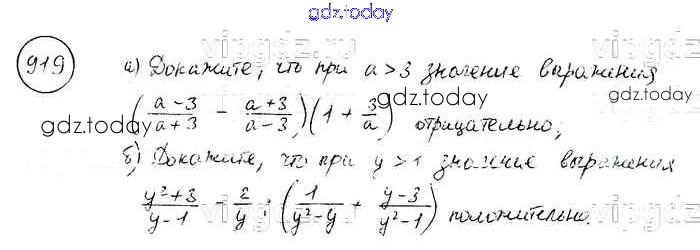 gdz.today
919 а) Докажите, что при a>3 значение выражения
((a-3)/(a+3) - (a+3)/(a-3))(1 + 3/a) отрицательно;
gdz.today
gdz.today
б) Докажите, что при y>1 значение выражения
(y²+3)/(y-1) - 2/y : (1/(y²-y) + (y-3)/(y²-1)) положительно.